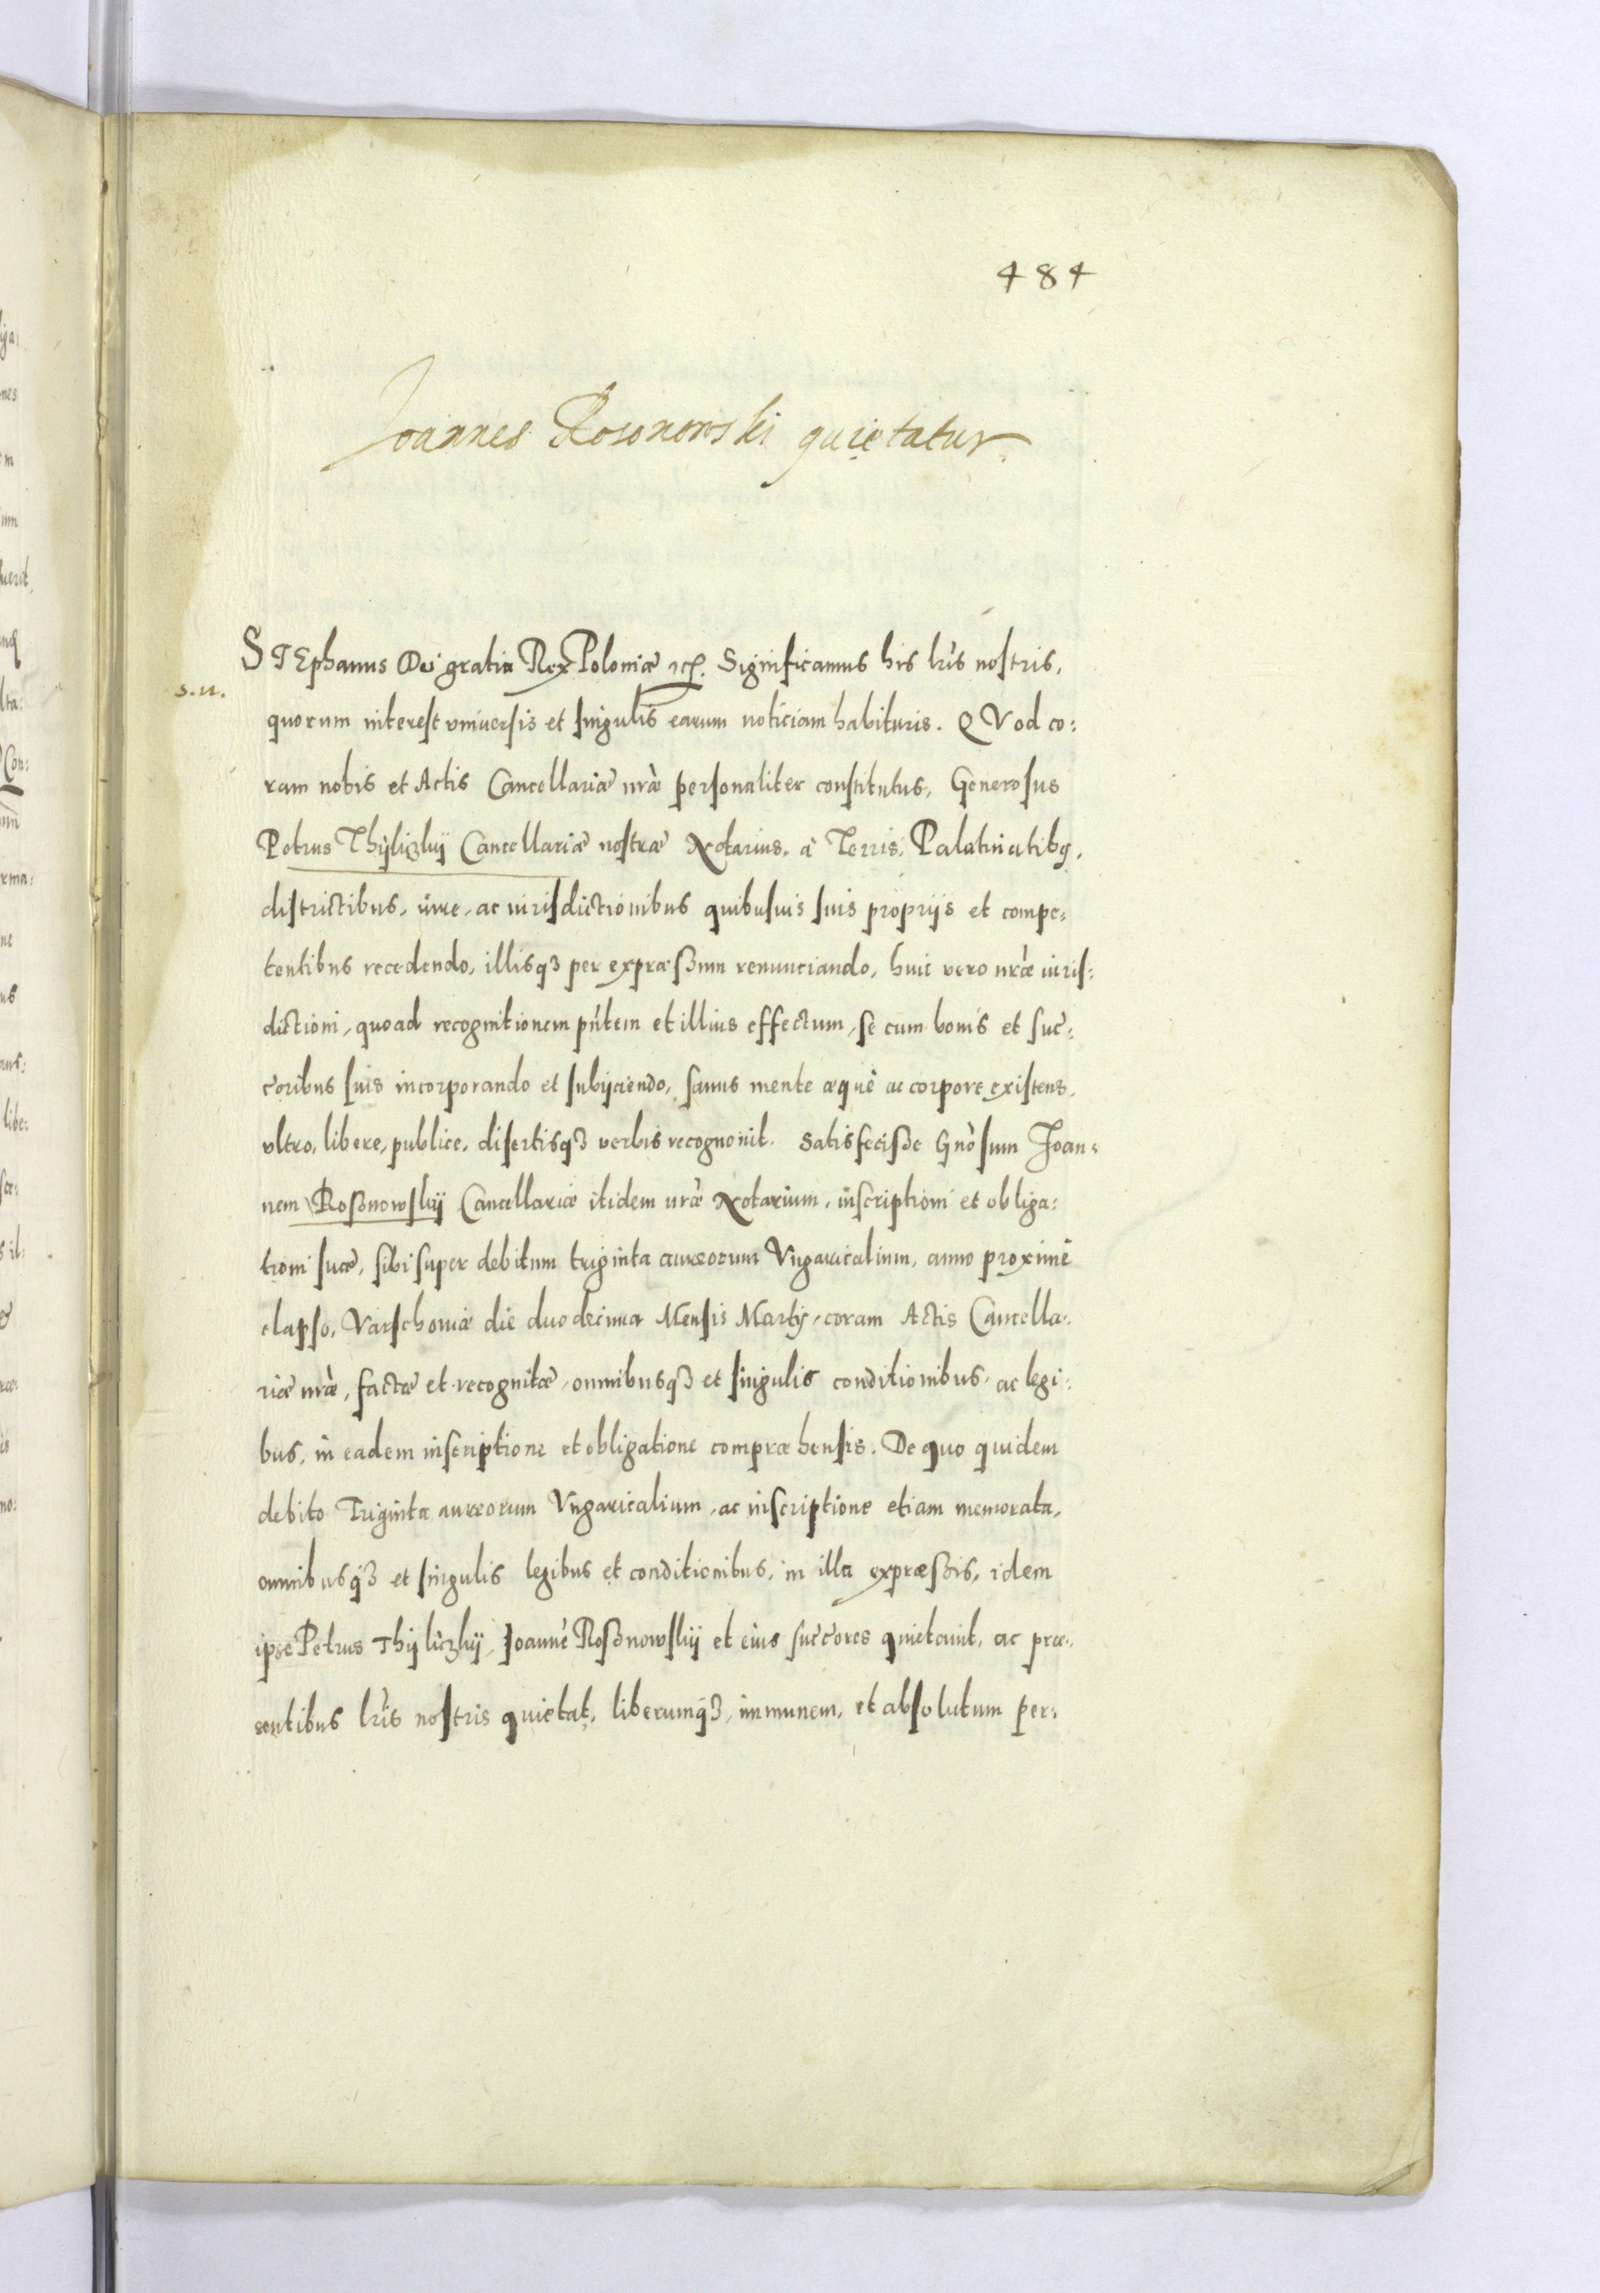 484
Joannes Rosonowski quietatur
STEphanus Dei gratia Rex Poloniæ etc. Significamus his lr̃is nostris,
s. n.
quorum interest vniuersis et singulis earum noticiam habituris. QVod co:
ram nobis et Actis Cancellariæ nr̃æ personaliter constitutus, Generosus
Petrus Thÿliczkÿ Cancellariæ nostræ Notarius, à Terris, Palatinatibq,
districtibus, iure, ac iurisdictionibus quibusuis suis proprijs et compe:
tentibus recedendo, illisqꝫ per expræßum renunciando, huic vero nr̃æ iuris:
dictioni, quoad recognitionem pñtem et illius effectum, se cum bonis et suc̃:
c̃oribus suis incorporando et subijciendo, sanus mente æquè ac corpore existens,
vltro, libere, publice, disertisqꝫ verbis recognouit. Satisfecißе Gñosum Joan:
nem Roßnowskÿ Cancellariæ itidem nr̃æ Notarium, inscriptioni et obliga:
tioni suæ, sibi super debitum triginta aureorum Vngaricalium, anno proximè
elapso, Varschouiæ die duodecima Mensis Martÿ, coram Actis Cancella:
riæ nr̃æ, factæ et recognitæ, omnibusqꝫ et singulis conditionibus, ac legi:
bus, in eadem inscriptione et obligatione compræhensis. De quo quidem
debito Triginta aureorum Vngaricalium, ac inscriptione etiam memorata,
omnibusqꝫ et singulis legibus et conditionibus, in illa expræßis, idem
ipse Petrus Thÿliczkÿ, Joannẽ Roßnowskÿ et eius suc̃c̃ores quietauit, ac præ:
sentibus lr̃is nostris quietat, liberumqꝫ, immunem, et absolutum per: